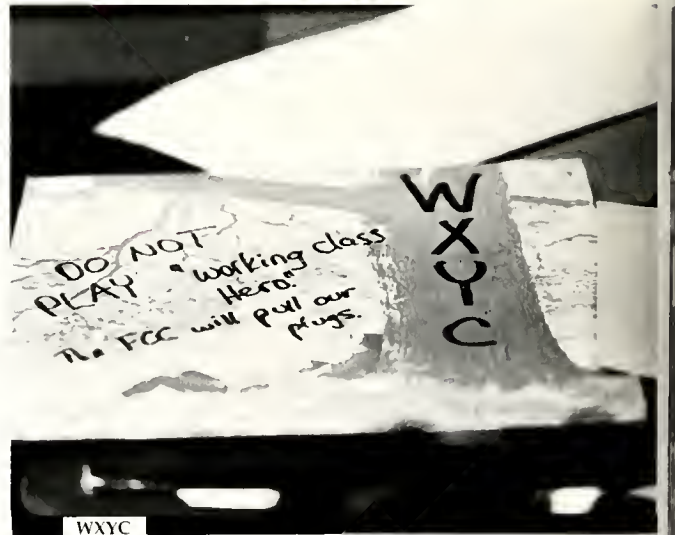 DO NOT
PLAY "Working Class
Hero."
The FCC will pull our
plugs.
W
X
Y
C
WXYC